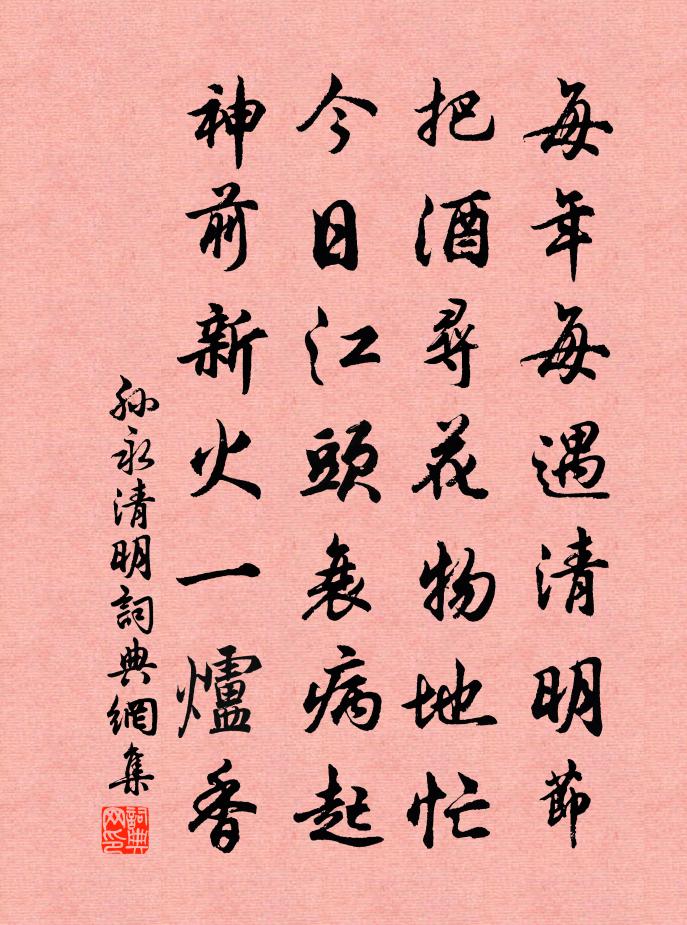 每年每遇清明節
把酒尋花物地忙
今日江頭衰病起
神前新火一爐香
孫永清明詞典網集
詞典网印